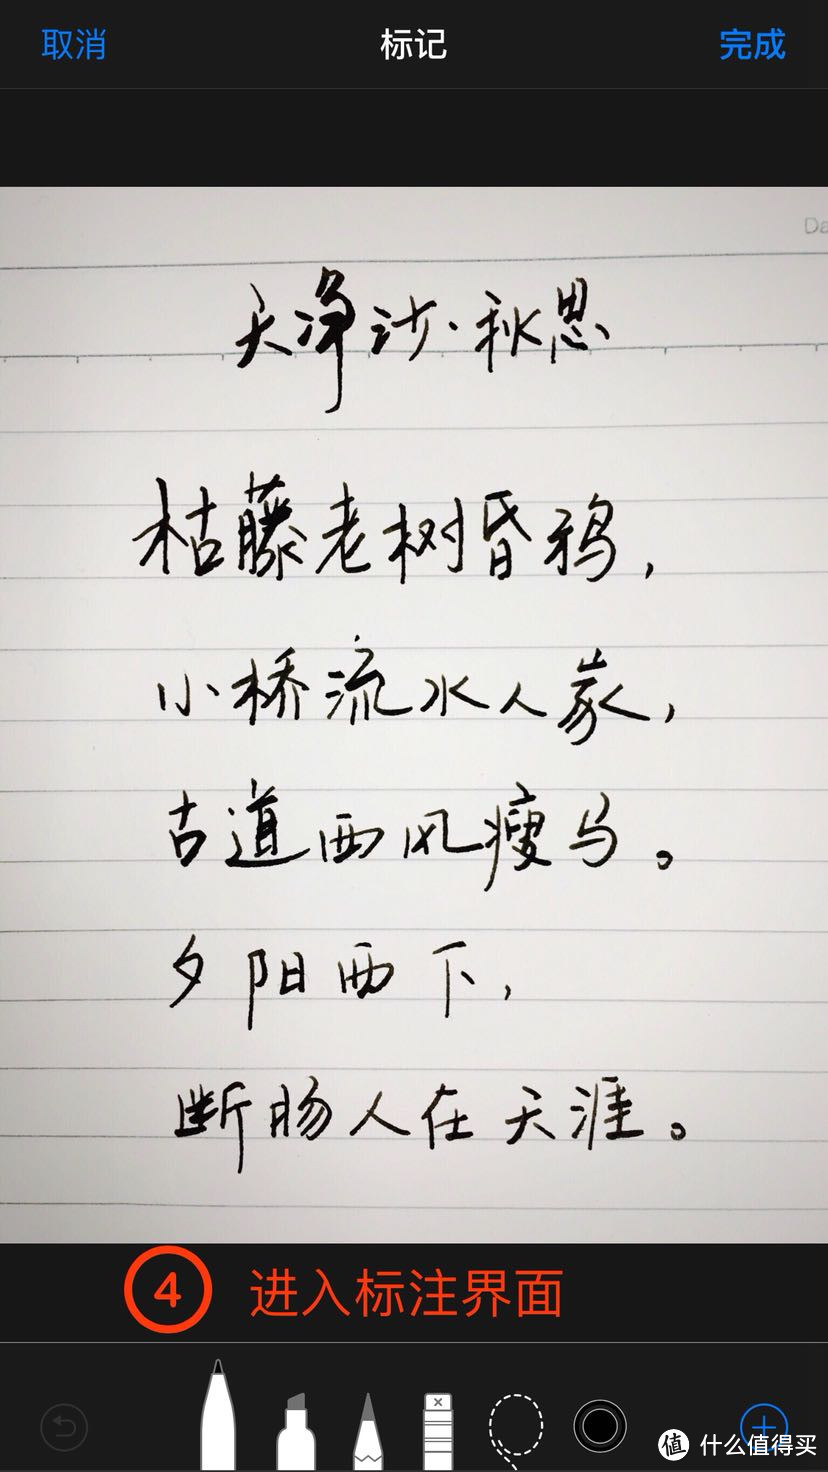 取消 标记 完成
Da
天净沙·秋思
枯藤老树昏鸦，
小桥流水人家，
古道西风瘦马。
夕阳西下，
断肠人在天涯。
4 进入标注界面
值 什么值得买